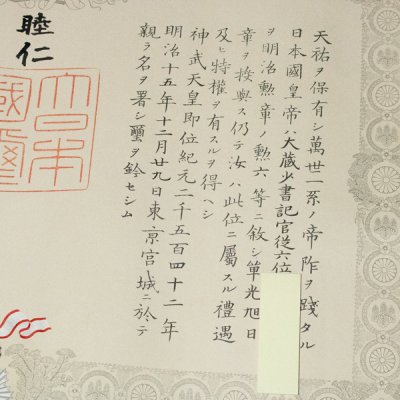 天祐ヲ保有シ萬世一系ノ帝祚ヲ踐タル
日本國皇帝ハ大藏少書記官從六位
ヲ明治勲章ノ勲六等ニ敘シ單光旭日
章ヲ授與ス仍テ汝ハ此位ニ屬スル禮遇
及ヒ特權ヲ有スルヲ得ヘシ
神武天皇即位紀元二千五百四十二年
明治十五年十二月廿九日東京宮城ニ於テ
親ラ名ヲ署シ璽ヲ鈐セシム
睦仁
大日本
國璽